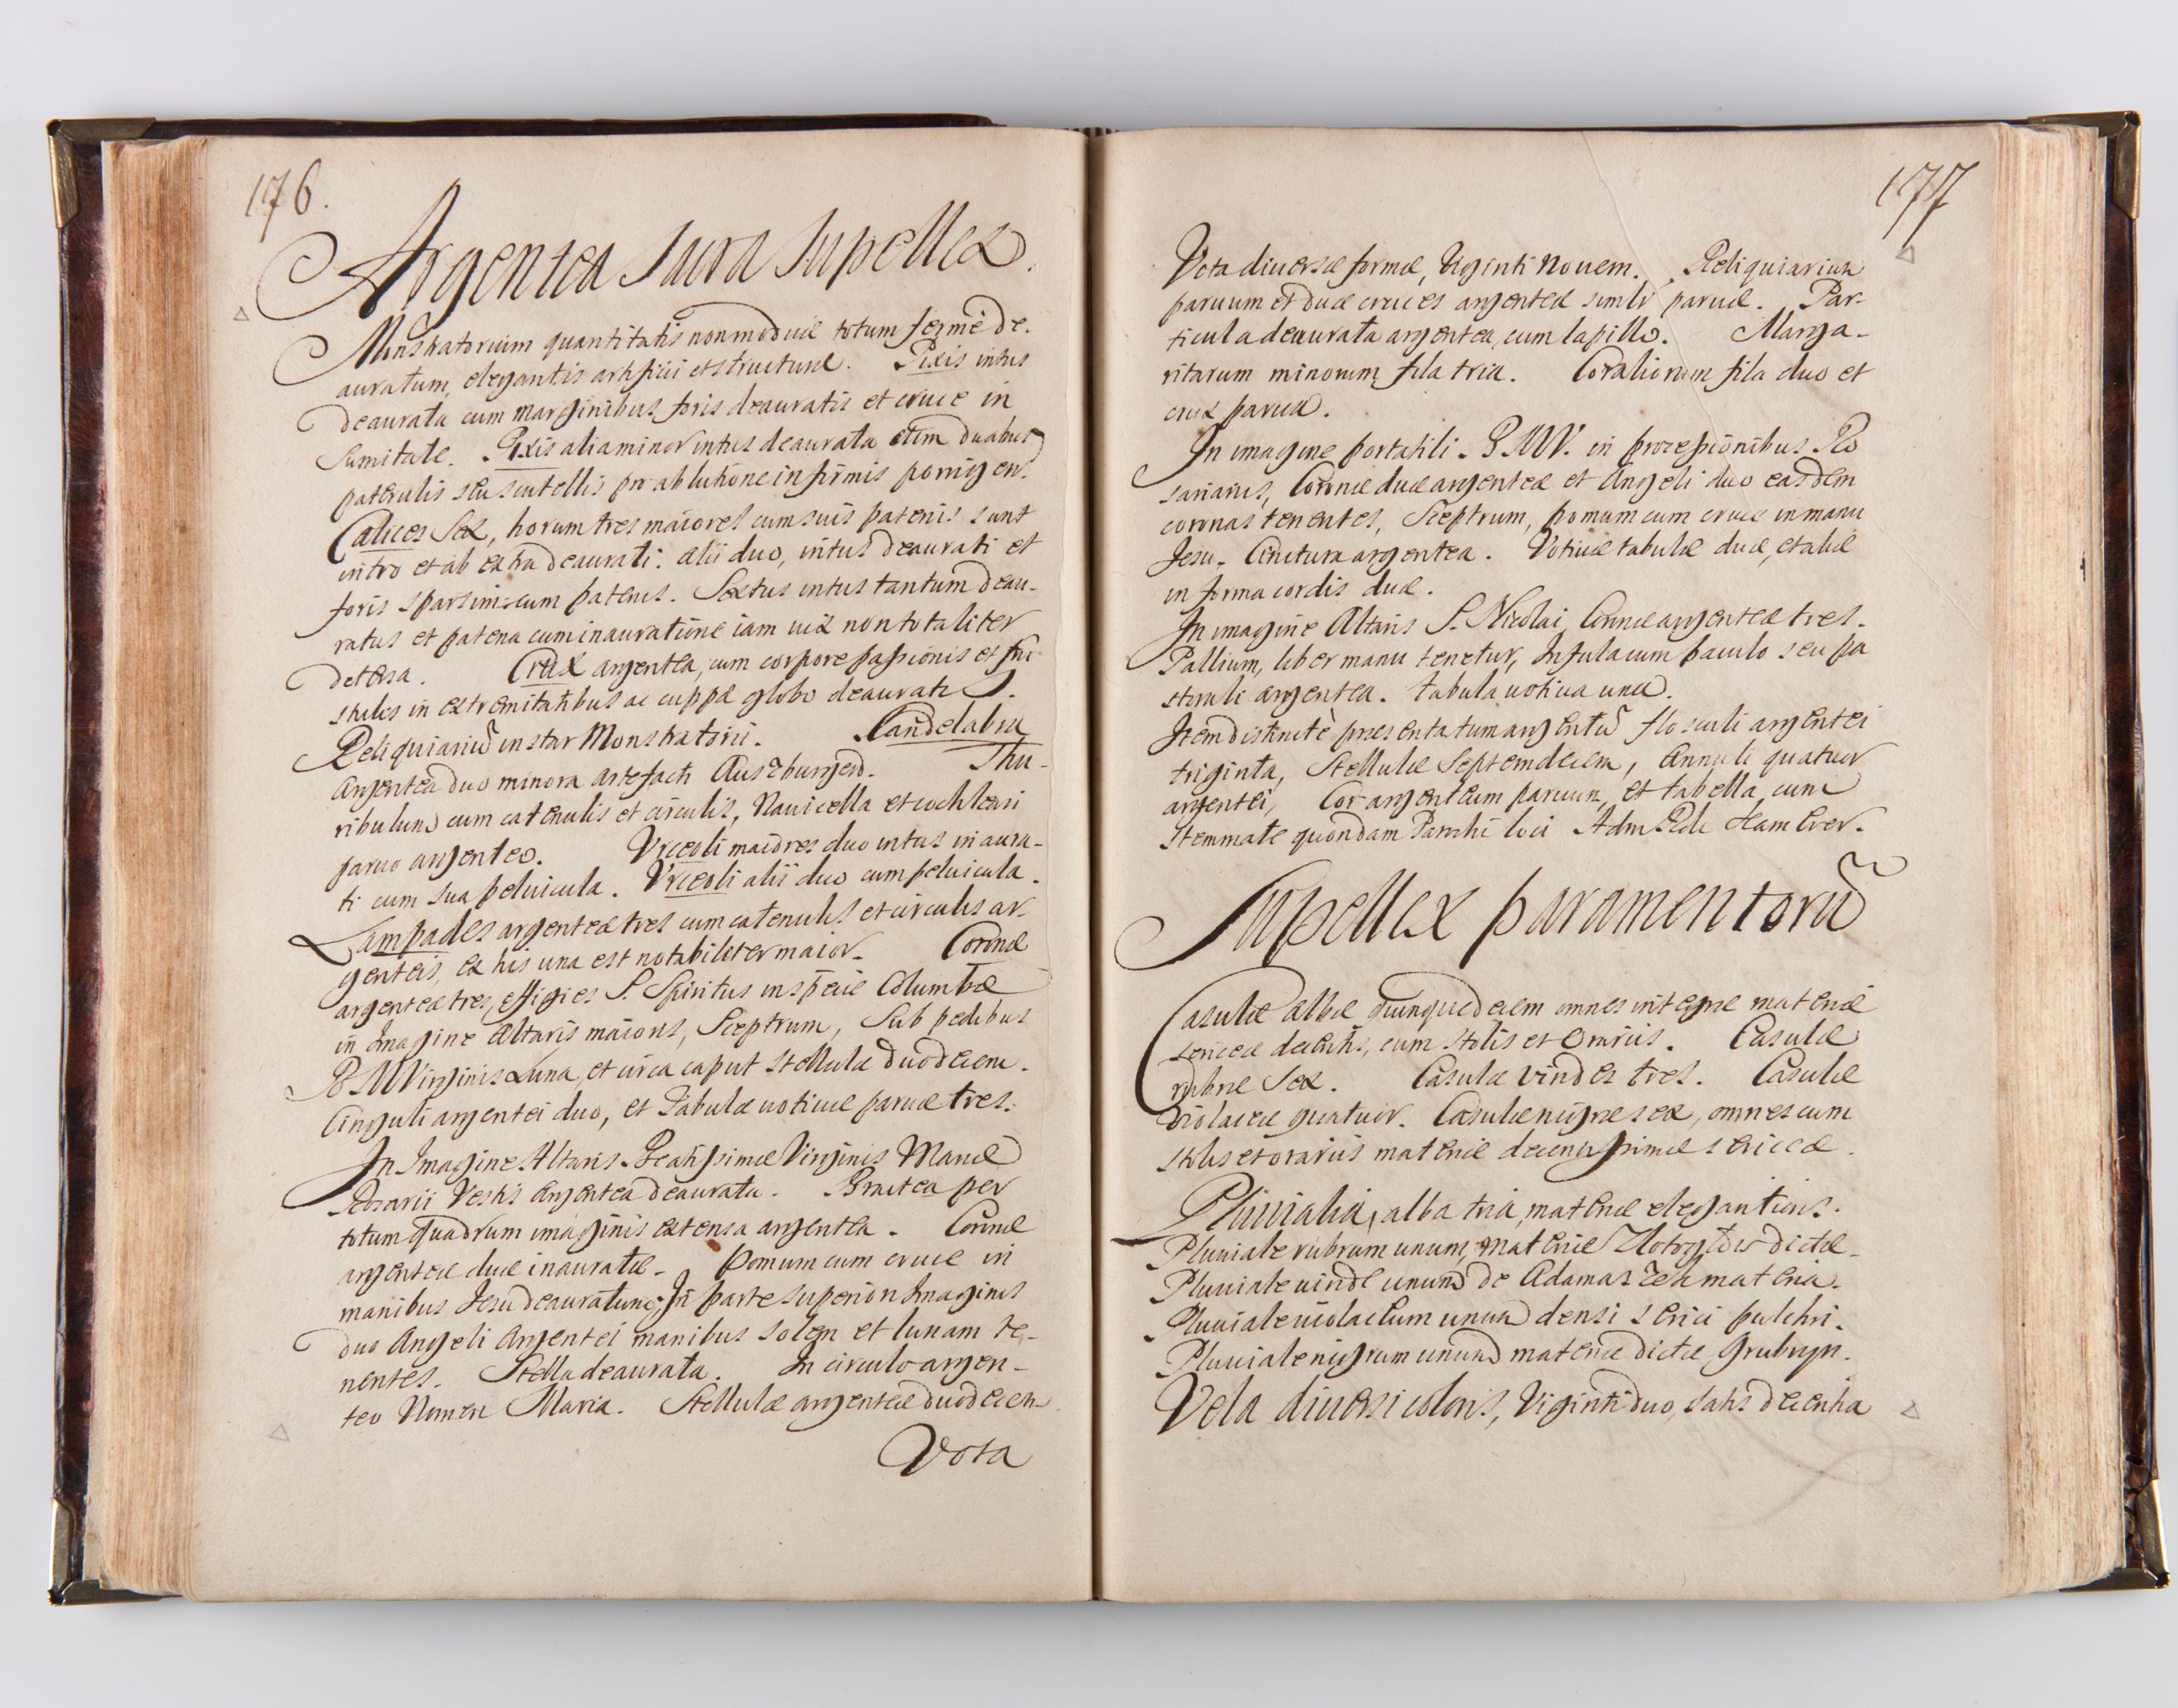 176.
Argentea Sacra Supellex.
Monstratorium quantitatis non modicæ totum fermè de-
auratum, elegantis artificii et structuræ. Pixis intus
deaurata cum marginibus foris deauratis et cruce in
sumitate. Pixis alia minor intus deaurata cum duabus
paterulis seu scutellis pro ablutione infirmis porrigen:
Calices Sex, horum tres maiores cum suis patenis sunt
intro et ab extra deaurati: alii duo, intus deaurati et
foris sparsim: cum patenis. Sextus intus tantum deau-
ratus et patena cum inauratione iam vix non totaliter
detersa. Crux argentea, cum corpore passionis et
in extremitatibus ac cuppæ globo deauratis.
Reliquiariū instar Monstratorii. Candelabra
Argentea duo minora artefacti Auszburgen. Thu-
ribulum cum catenulis et circulis, Navicella et cochleari
parvo argenteo. Vrceoli maiores duo intus inaura-
ti cum sua pelvicula. Vrceoli alii duo cum pelvicula.
Lampades argenteæ tres cum catenulis et circulis ar-
genteis, ex his una est notabiliter maior. Coronæ
argenteæ tres, effigies S. Spiritus in specie Columbæ
in Imagine Altaris maioris, Sceptrum, Sub pedibus
B M Virginis Luna, et circa caput stellulæ duodecem.
Cinguli argentei duo, et Tabulæ votivæ parvæ tres.
In Imagine Altaris Beatissimæ Virginis Mariæ
Rosarii Vestis argentea deaurata. Bractea per
totum quadrum imaginis extensa argentea. Coronæ
argenteæ duæ inauratæ. Pomum cum cruce in
manibus Jesu deauratum; In parte superiori Imaginis
duo Angeli Argentei manibus solem et lunam te-
nentes. Stella deaurata. In circulo argen-
teo Nomen Maria. Stellulæ argenteæ duodecem
Vota
177
Vota diversæ formæ, Viginti Novem. Reliquiarium
parvum et duæ cruces argenteæ simlr parvæ. Par-
ticula deaurata argentea, cum lapillo. Marga-
ritarum minorum fila tria. Coraliorum fila duo et
crux parva.
In imagine portatili B M V. in processionibus Ro
sariariis, Coronæ duæ argenteæ et Angeli duo easdem
coronas tenentes, Sceptrum, pomum cum cruce in manu
Jesu. Cinctura argentea. Votivæ tabulæ duæ, et aliæ
in forma cordis duæ.
In imagine Altaris S. Nicolai, Coronæ argenteæ tres.
Pallium, liber manu tenetur, Infula cum baculo seu pa
storali argentea. tabula votiva una.
Item distinctè præsentatum argentū flosculi argentei
triginta, Stellulæ Septemdecem, Annuli quatuor
argentei, Cor argenteum parvum, et tabella cum
stemmate quondam Parochi loci
Supellex paramentorū
Casulæ albæ quinquedecem omnes integræ materiæ
sericeæ decentis, cum stolis et Orariis. Casulæ
rubræ Sex. Casulæ virides tres. Casulæ
violaceæ quatuor. Casulæ nigræ sex, omnes cum
stolis et orariis materiæ decentissimæ sericeæ.
Pluvialia, alba tria, materiæ elegantioris.
Pluviale rubrum unum, materiæ dictæ.
Pluviale viride unum de Adamaszek materia.
Pluviale violaceum unum densi serici pulchri.
Pluviale nigrum unum materiæ dictæ Grubryn.
Vela diversi coloris, Viginti duo, satis decentia